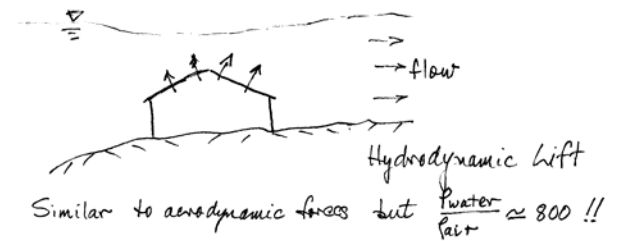 flow
Hydrodynamic Lift
Similar to aerodynamic forces but ρwater/ρair ≃ 800 !!